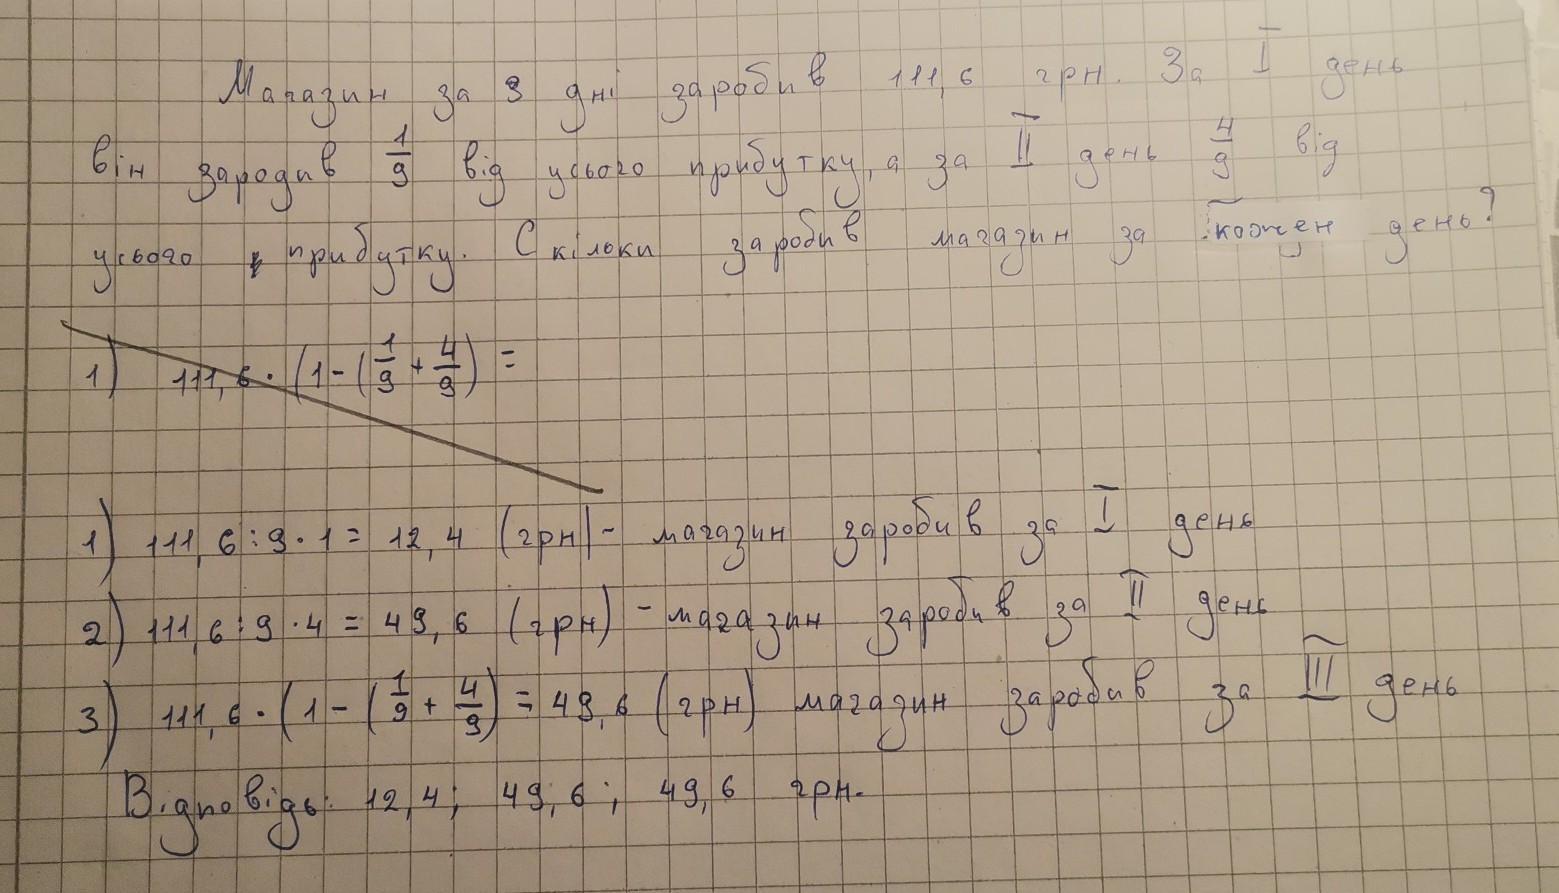 Магазин за 3 дні заробив 111,6 грн. За I день
він зародив 1/9 від усього прибутку, а за II день 4/9 від
усього прибутку. Скілоки заробив магазин за кожен день?
1) 111,6 · (1 - (1/9 + 4/9) =
1) 111,6 : 9 · 1 = 12,4 (грн) - магазин заробив за I день
2) 111,6 : 9 · 4 = 49,6 (грн) - магазин заробив за II день
3) 111,6 · (1 - (1/9 + 4/9) = 49,6 (грн) магазин заробив за III день
Відповідь: 12,4; 49,6; 49,6 грн.